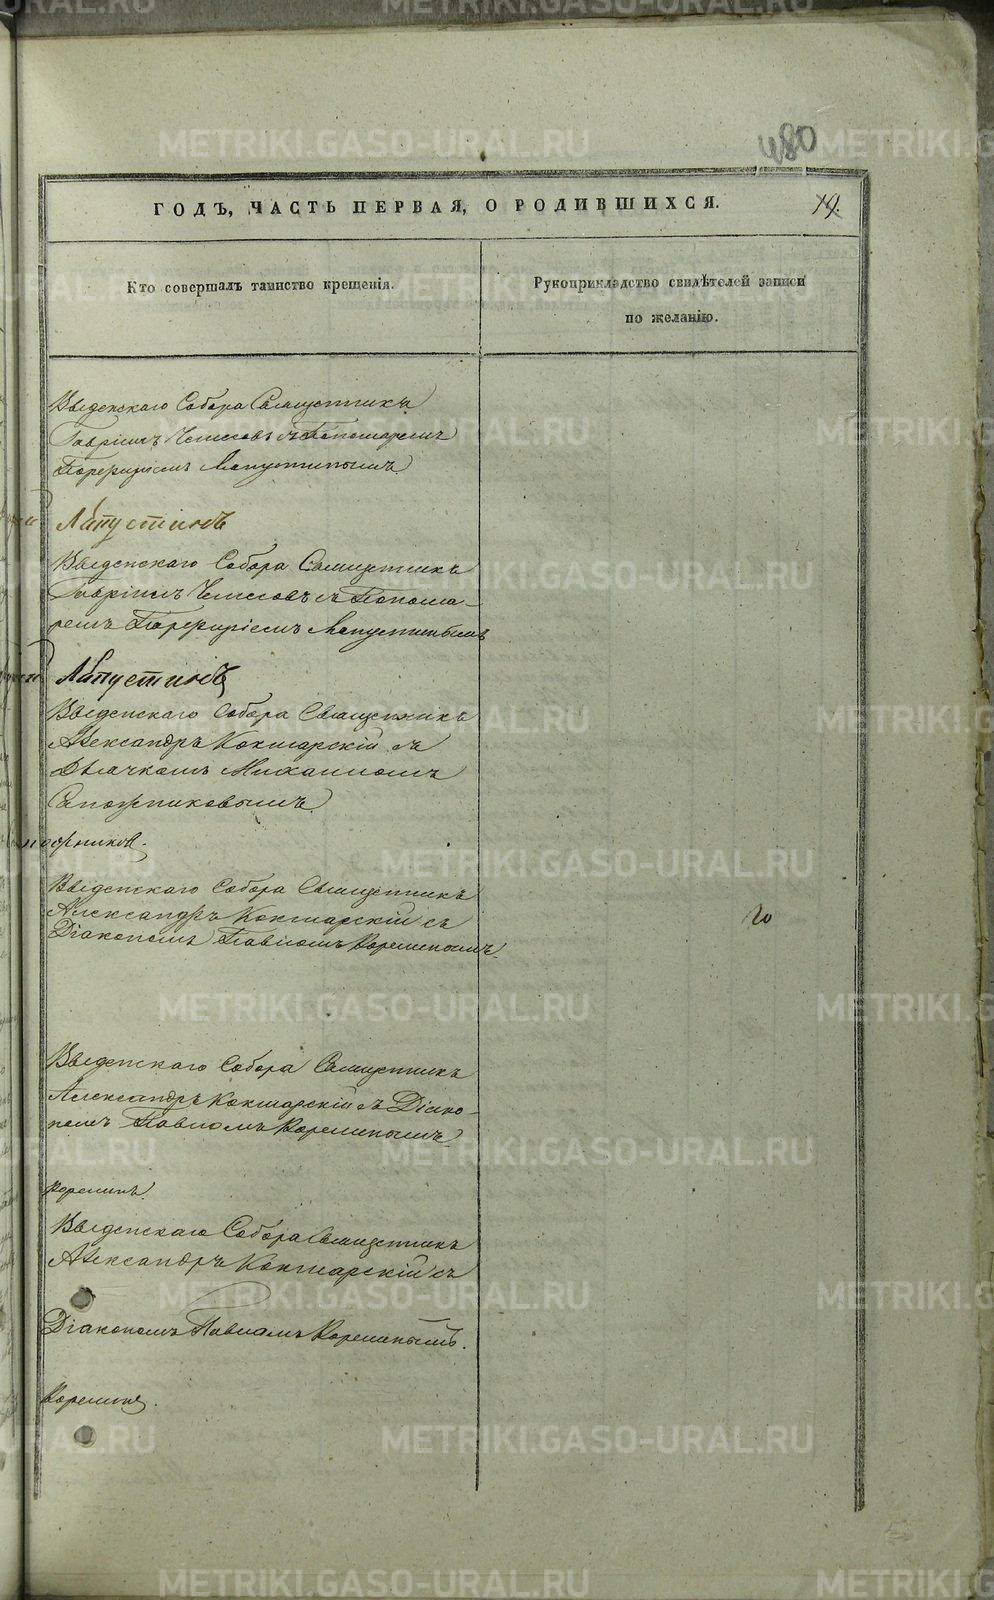 480
ГОДЪ, ЧАСТЬ ПЕРВАЯ, О РОДИВШИХСЯ.
19.
Кто совершалъ таинство крещенія.
Рукоприкладство свидѣтелей записи
по желанію.
Введенскаго Собора Священникъ
Гавріилъ съ Пономаремъ
Порфиріемъ Лапустинымъ
Лапустинъ
Введенскаго Собора Священникъ
Гавріилъ съ Понома-
ремъ Порфиріемъ Лапустинымъ
Лапустинъ
Введенскаго Собора Священникъ
Александръ Кокшарскій съ
Дьячкомъ Михаиломъ
Сапожниковымъ
Введенскаго Собора Священникъ
Александръ Кокшарскій съ
Діакономъ Павломъ Корелинымъ.
20
Введенскаго Собора Священникъ
Александръ Кокшарскій съ Діако-
номъ Павломъ Корелинымъ
Корелинъ.
Введенскаго Собора Священникъ
Александръ Кокшарскій съ
Діакономъ Павломъ Корелинымъ.
Корелинъ.
METRIKI.GASO-URAL.RU